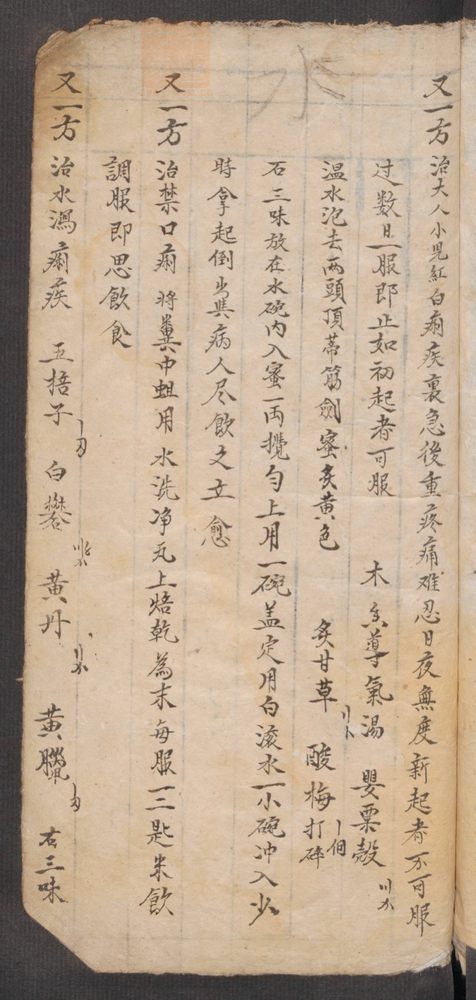 水
又一方治大人小兒紅白痢疾裏急後重疼痛难忍日夜無度新起者不可服
过数日一服即止如初起者可服 木香導氣湯 罌粟殼
温水泡去两頭頂蒂筋劍蜜炙黄色 炙甘草 酸梅打碎
石三味放在水碗内入蜜一両攪匀上用一碗盖定用白滚水一小碗冲入少
時拿起倒出與病人尽飲之立愈
又一方 治禁口痢 將糞中蛆用水洗净瓦上焙乾為末每服一二匙米飲
調服即思飲食
又一方 治水瀉痢疾 五捂子 白礬 黄丹 黄臘 右三味